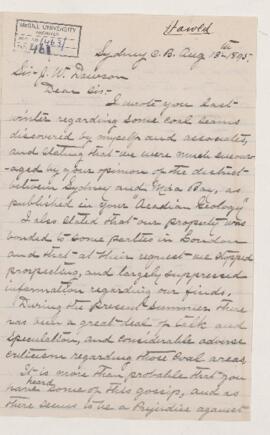 Harold
McGILL UNIVERSITY
ARCHIVES
1463
2461
Sydney C.B. Aug 13th 1895.
Sir J. W. Dawson
Dear Sir:-
I wrote you last
winter regarding some coal seams
discovered by myself and associates,
and stating that we were much encour-
aged by your opinion of the district
between Sydney and Mira Bay, as
published in your "Acadian Geology"
I also stated that our property was
bonded to some parties in London
and that at their request we stopped
prospecting, and largely suppressed
information regarding our finds.
During the present summer there
has been a great deal of talk and
speculation, and considerable adverse
criticism regarding those Coal areas
It is more than probable that you
heard
have some of this gossip, and as
there seems to be a Prejudice against